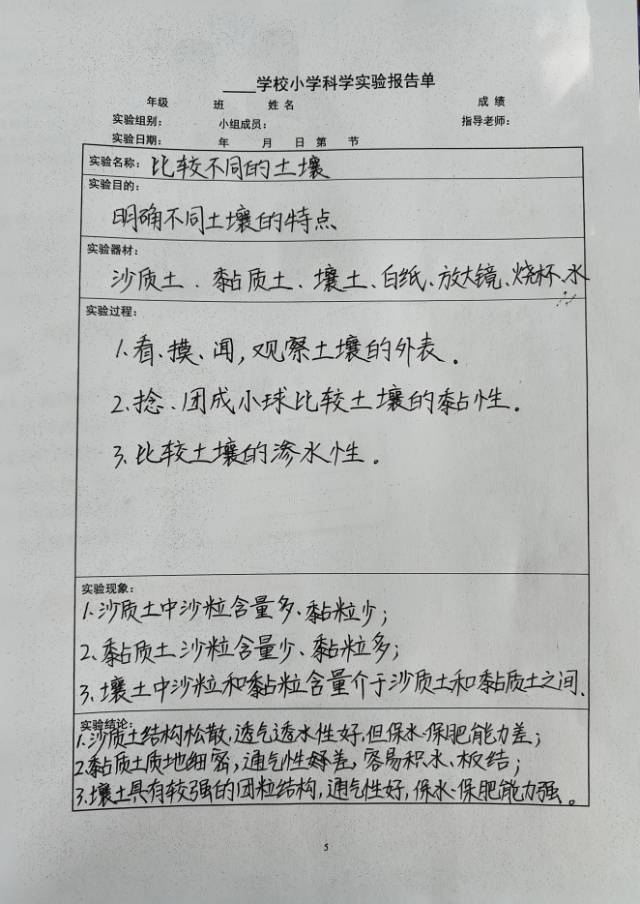 ____学校小学科学实验报告单
年级 班 姓名 成绩
实验组别： 小组成员： 指导老师：
实验日期： 年 月 日 第 节
实验名称：比较不同的土壤
实验目的：
明确不同土壤的特点
实验器材：
沙质土、黏质土、壤土、白纸、放大镜、烧杯、水
实验过程：
1.看、摸、闻，观察土壤的外表。
2.捻、团成小球比较土壤的黏性。
3.比较土壤的渗水性。
实验现象：
1.沙质土中沙粒含量多、黏粒少；
2.黏质土沙粒含量少、黏粒多；
3.壤土中沙粒和黏粒含量介于沙质土和黏质土之间.
实验结论：
1.沙质土结构松散，透气透水性好，但保水、保肥能力差；
2.黏质土质地细密，通气性差，容易积水、板结；
3.壤土具有较强的团粒结构，通气性好，保水、保肥能力强。
5